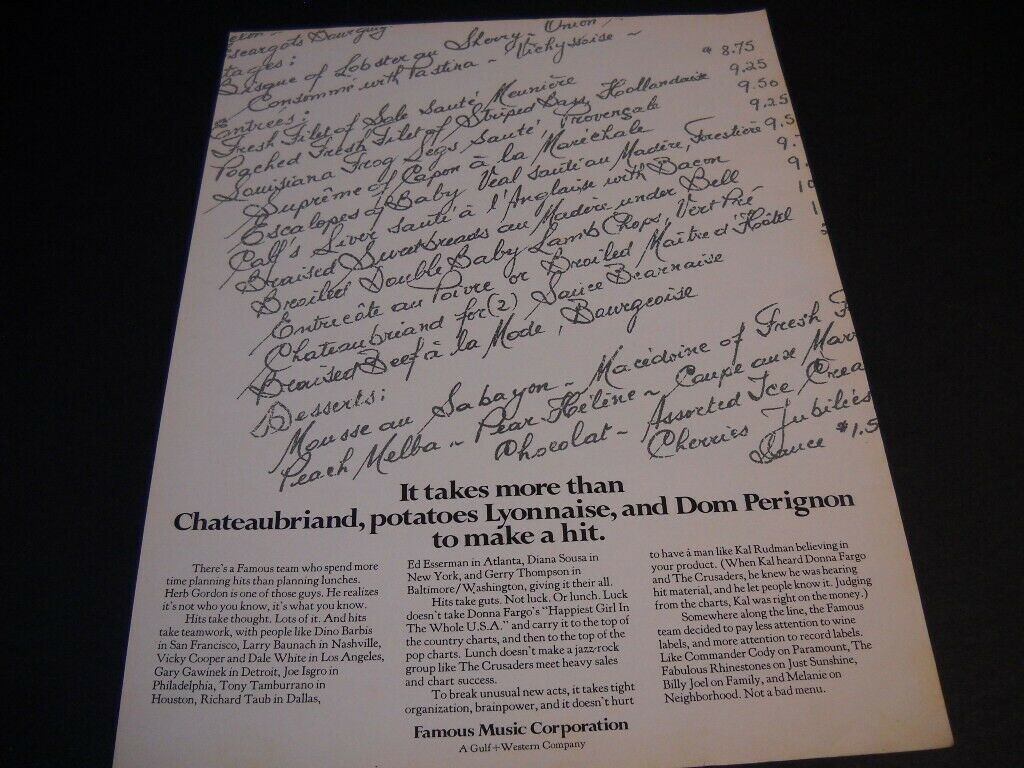 Escargots Bourguig
tages:
Bisque of Lobster au Sherry - Union
Consommé with Pastina - Vichyssoise -
Entrées:
Fresh Filet of Sole Sauté Meunière $8.75
Poached Fresh Filet of Striped Bass Hollandaise 9.25
Louisiana Frog Legs Sauté, Provençale 9.50
Suprême of Capon à la Maréchale 9.25
Escalopes of Baby Veal Sauté au Madère, Forestière 9.5
Calf's Liver Sauté à l'Anglaise with Bacon 9.
Braised Sweetbreads au Madère under Bell 9.
Broiled Double Baby Lamb Chops, Vert Pré 10
Entrecôte au Poivre or Broiled Maître d'Hôtel 1
Chateaubriand for (2) Sauce Bearnaise
Braised Beef à la Mode, Bourgeoise
Desserts:
Mousse au Sabayon - Macédoine of Fresh F
Peach Melba - Pear Hélène - Coupe aux Marr
Chocolat - Assorted Ice Crea
Cherries Jubilées
Sauce $1.5
It takes more than
Chateaubriand, potatoes Lyonnaise, and Dom Perignon
to make a hit.
There's a Famous team who spend more
time planning hits than planning lunches.
Herb Gordon is one of those guys. He realizes
it's not who you know, it's what you know.
Hits take thought. Lots of it. And hits
take teamwork, with people like Dino Barbis
in San Francisco, Larry Baunach in Nashville,
Vicky Cooper and Dale White in Los Angeles,
Gary Gawinek in Detroit, Joe Isgro in
Philadelphia, Tony Tamburrano in
Houston, Richard Taub in Dallas,
Ed Esserman in Atlanta, Diana Sousa in
New York, and Gerry Thompson in
Baltimore/Washington, giving it their all.
Hits take guts. Not luck. Or lunch. Luck
doesn't take Donna Fargo's "Happiest Girl In
The Whole U.S.A." and carry it to the top of
the country charts, and then to the top of the
pop charts. Lunch doesn't make a jazz-rock
group like The Crusaders meet heavy sales
and chart success.
To break unusual new acts, it takes tight
organization, brainpower, and it doesn't hurt
to have a man like Kal Rudman believing in
your product. (When Kal heard Donna Fargo
and The Crusaders, he knew he was hearing
hit material, and he let people know it. Judging
from the charts, Kal was right on the money.)
Somewhere along the line, the Famous
team decided to pay less attention to wine
labels, and more attention to record labels.
Like Commander Cody on Paramount, The
Fabulous Rhinestones on Just Sunshine,
Billy Joel on Family, and Melanie on
Neighborhood. Not a bad menu.
Famous Music Corporation
A Gulf+Western Company